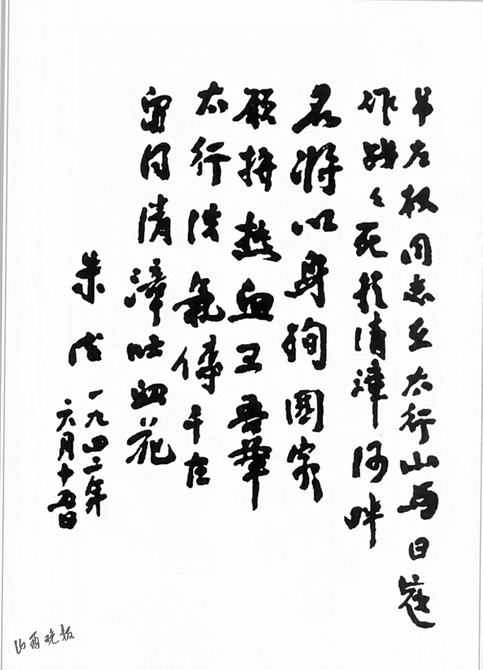 吊左权同志在太行山与日寇
作战々死於清漳河畔
名将以身殉國家
願拼热血卫吾華
太行浩氣傳千古
留得清漳吐血花
朱德 一九四二年
六月十五日
山西晚报